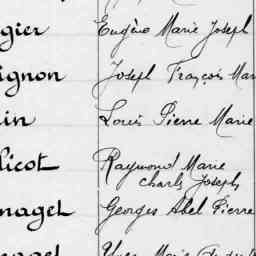 gier Eugène Marie Joseph
ignon Joseph François Mar
in Louis Pierre Marie
licot Raymond Marie
Charles Joseph
nagel Georges Abel Pierre
nagel Yves Marie